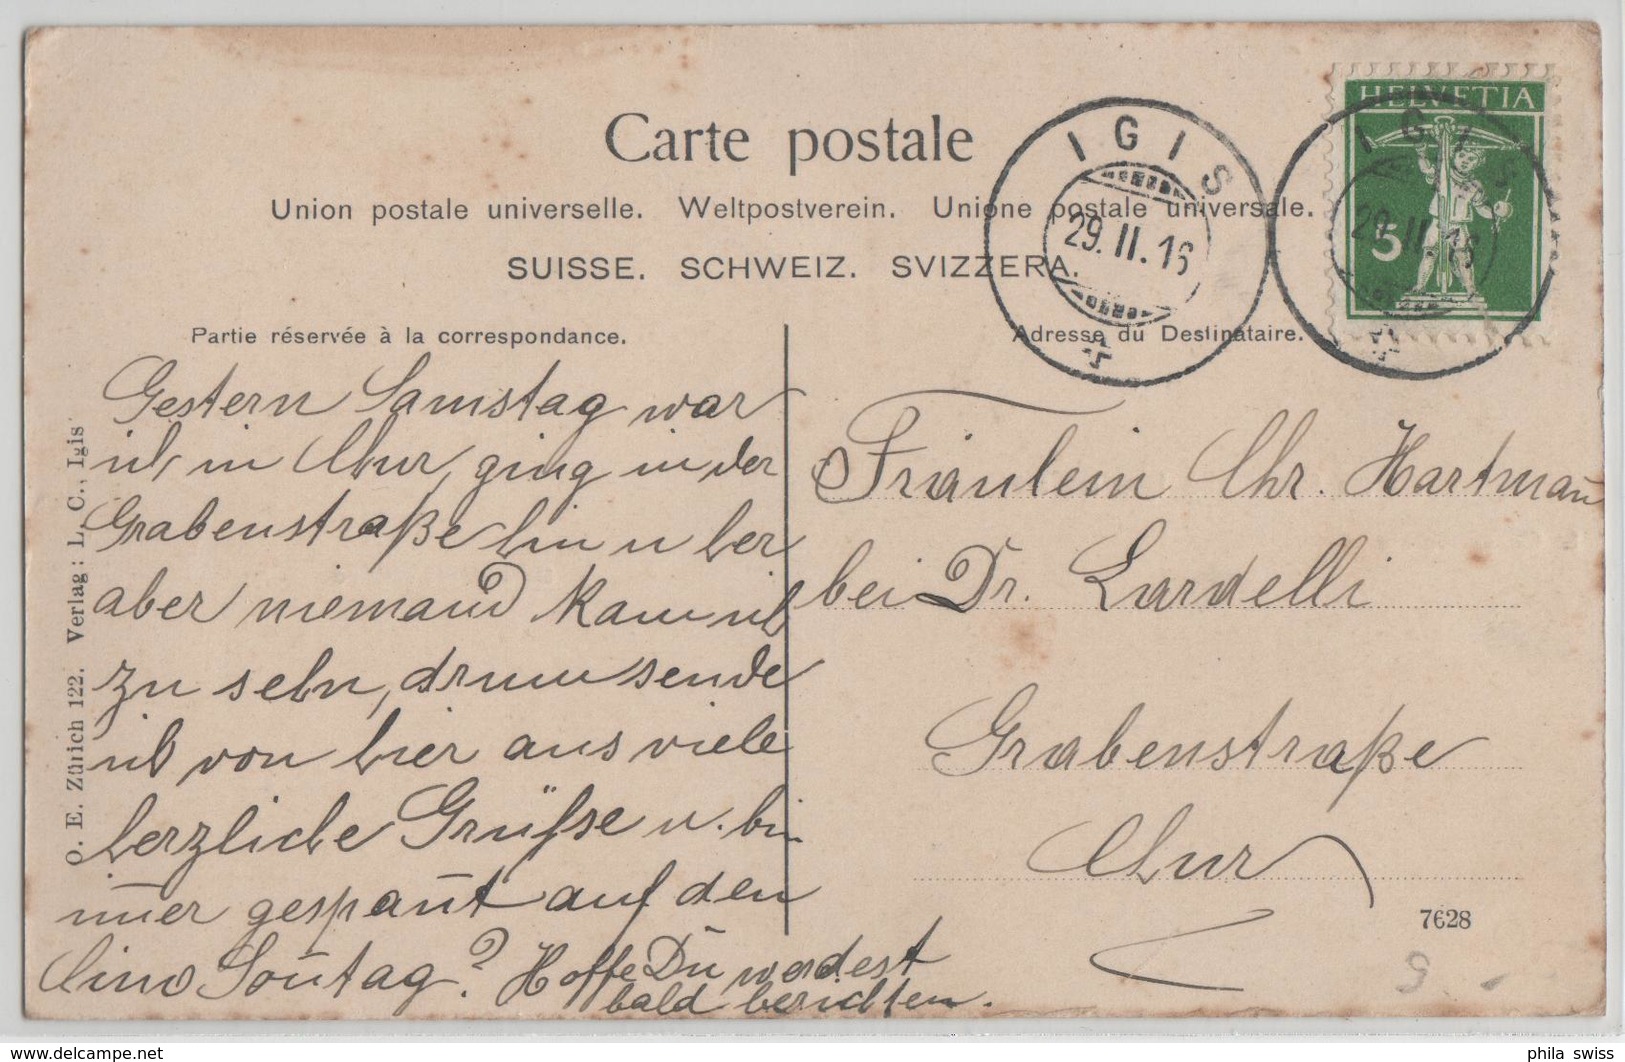 Carte postale
Union postale universelle. Weltpostverein. Unione postale universale.
SUISSE. SCHWEIZ. SVIZZERA.
Partie réservée à la correspondance.
Adresse du Destinataire.
HELVETIA
5
IGIS
29.II.16
IGIS
29.II.16
Gestern Samstag war
ich in Chur, ging in der
Grabenstraße hin u her
aber niemand kam ich
zu sehn, drum sende
ich von hier aus viele
herzliche Grüße u. bin
im̄er gespan̄t auf den
Cino Son̄tag? Hoffe Du werdest
bald berichten.
Fräulein Chr. Hartman̄
bei Dr. Lardelli
Grabenstraße
Chur
7628
O. E. Zürich 122. Verlag: L. C., Igis
delcampe.net
phila_swiss